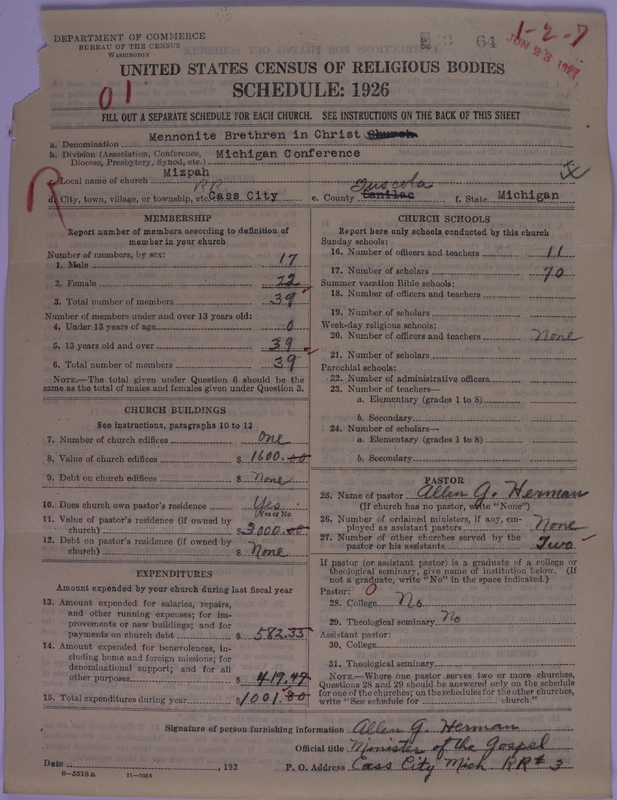 DEPARTMENT OF COMMERCE
BUREAU OF THE CENSUS
WASHINGTON
64
1-2-7
JUN 23 1927
UNITED STATES CENSUS OF RELIGIOUS BODIES
SCHEDULE: 1926
01
FILL OUT A SEPARATE SCHEDULE FOR EACH CHURCH. SEE INSTRUCTIONS ON THE BACK OF THIS SHEET
a. Denomination Mennonite Brethren in Christ Church
b. Division (Association, Conference, Diocese, Presbytery, Synod, etc.) Michigan Conference
R
c. Local name of church Mizpah
d. City, town, village, or township, etc. RR. Cass City e. County Sanilac Tuscola f. State Michigan
MEMBERSHIP
Report number of members according to definition of
member in your church
Number of members, by sex:
1. Male 17
2. Female 22
3. Total number of members 39
Number of members under and over 13 years old:
4. Under 13 years of age 0
5. 13 years old and over 39
6. Total number of members 39
NOTE.—The total given under Question 6 should be the
same as the total of males and females given under Question 3.
CHURCH BUILDINGS
See instructions, paragraphs 10 to 12
7. Number of church edifices One
8. Value of church edifices $ 1600.00
9. Debt on church edifices $ None
10. Does church own pastor's residence Yes
(Yes or No)
11. Value of pastor's residence (if owned by
church) $ 3000.00
12. Debt on pastor's residence (if owned by
church) $ None
EXPENDITURES
Amount expended by your church during last fiscal year
13. Amount expended for salaries, repairs,
and other running expenses; for im-
provements or new buildings; and for
payments on church debt $ 582.33
14. Amount expended for benevolences, in-
cluding home and foreign missions; for
denominational support; and for all
other purposes $ 419.47
15. Total expenditures during year $ 1001.80
CHURCH SCHOOLS
Report here only schools conducted by this church
Sunday schools:
16. Number of officers and teachers 11
17. Number of scholars 70
Summer vacation Bible schools:
18. Number of officers and teachers
19. Number of scholars
Week-day religious schools:
20. Number of officers and teachers None
21. Number of scholars
Parochial schools:
22. Number of administrative officers
23. Number of teachers—
a. Elementary (grades 1 to 8)
b. Secondary
24. Number of scholars—
a. Elementary (grades 1 to 8)
b. Secondary
PASTOR
25. Name of pastor Allen G. Herman
(If church has no pastor, write "None")
26. Number of ordained ministers, if any, em-
ployed as assistant pastors None
27. Number of other churches served by the
pastor or his assistants Two
If pastor (or assistant pastor) is a graduate of a college or
theological seminary, give name of institution below. (If
not a graduate, write "No" in the space indicated.)
Pastor: 0
28. College No
29. Theological seminary No
Assistant pastor:
30. College
31. Theological seminary
NOTE.—Where one pastor serves two or more churches,
Questions 28 and 29 should be answered only on the schedule
for one of the churches; on the schedules for the other churches,
write "See schedule for church."
Signature of person furnishing information Allen G. Herman
Official title Minister of the Gospel
Date , 192 P. O. Address Cass City Mich RR# 3
8—5518a 11—9224